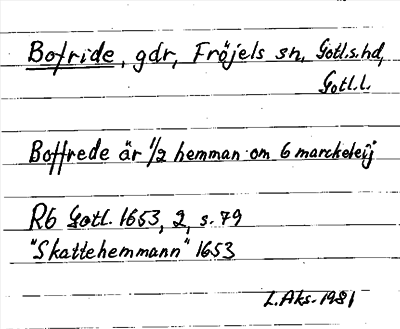 Bofride, gdr, Fröjels sn, Gotl.s.hd,
Gotl.l.
Boffrede är 1/2 hemman om 6 marckeleij
Rb Gotl. 1653, 2, s. 79
"Skattehemmann" 1653
L.Aks. 1981